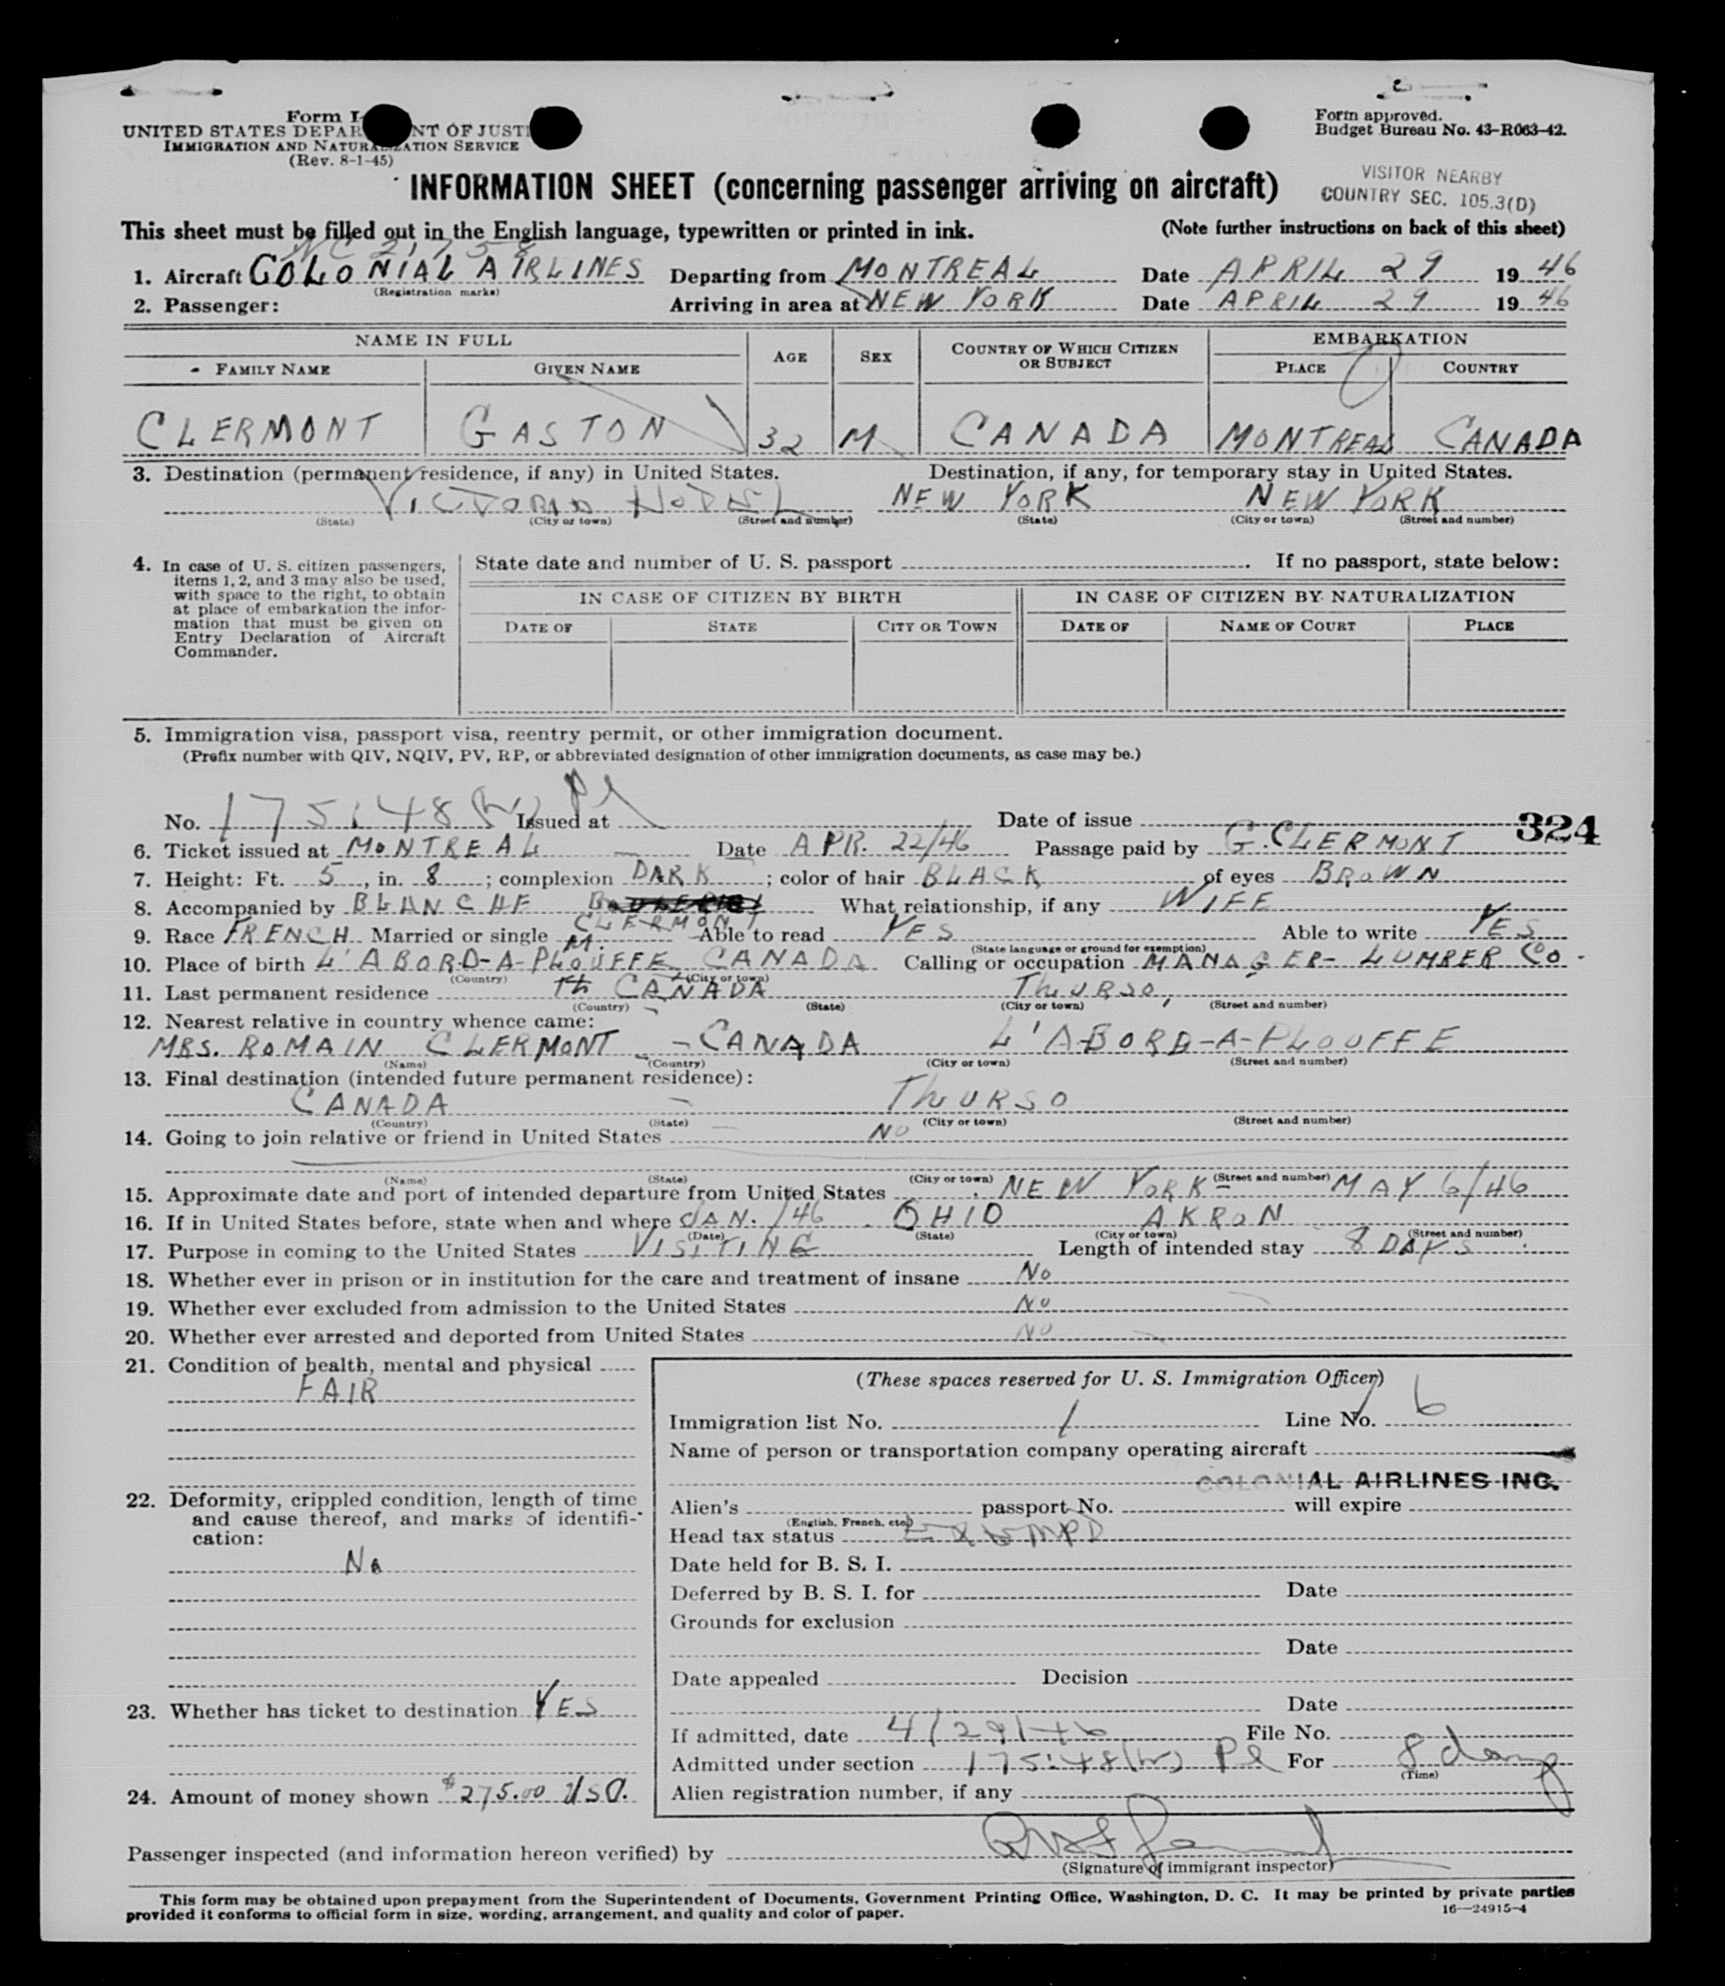 Form I-
UNITED STATES DEPAR NT OF JUSTI
IMMIGRATION AND NATURALIZATION SERVICE
(Rev. 8-1-45)
Form approved.
Budget Bureau No. 43-R063-42.
VISITOR NEARBY
COUNTRY SEC. 105.3(D)
INFORMATION SHEET (concerning passenger arriving on aircraft)
This sheet must be filled out in the English language, typewritten or printed in ink. (Note further instructions on back of this sheet)
NC 21758
1. Aircraft COLONIAL AIRLINES Departing from MONTREAL Date APRIL 29 1946
(Registration marks)
2. Passenger: Arriving in area at NEW YORK Date APRIL 29 1946
NAME IN FULL AGE SEX COUNTRY OF WHICH CITIZEN OR SUBJECT EMBARKATION
FAMILY NAME GIVEN NAME PLACE COUNTRY
CLERMONT GASTON 32 M CANADA MONTREAL CANADA
3. Destination (permanent residence, if any) in United States. Destination, if any, for temporary stay in United States.
VICTORIA HOTEL NEW YORK NEW YORK
(State) (City or town) (Street and number) (State) (City or town) (Street and number)
4. In case of U. S. citizen passengers, items 1, 2, and 3 may also be used, with space to the right, to obtain at place of embarkation the information that must be given on Entry Declaration of Aircraft Commander.
State date and number of U. S. passport . If no passport, state below:
IN CASE OF CITIZEN BY BIRTH IN CASE OF CITIZEN BY NATURALIZATION
DATE OF STATE CITY OR TOWN DATE OF NAME OF COURT PLACE
5. Immigration visa, passport visa, reentry permit, or other immigration document.
(Prefix number with QIV, NQIV, PV, RP, or abbreviated designation of other immigration documents, as case may be.)
No. 175:48(b) Pl Issued at Date of issue
324
6. Ticket issued at MONTREAL Date APR. 22/46 Passage paid by G. CLERMONT
7. Height: Ft. 5, in. 8; complexion DARK; color of hair BLACK of eyes BROWN
8. Accompanied by BLANCHE CLERMONT What relationship, if any WIFE
9. Race FRENCH Married or single M. Able to read YES Able to write YES
(State language or ground for exemption)
10. Place of birth L'ABORD-A-PLOUFFE CANADA Calling or occupation MANAGER - LUMBER CO.
(Country) (City or town)
11. Last permanent residence CANADA THURSO,
(Country) (State) (City or town) (Street and number)
12. Nearest relative in country whence came:
MRS. ROMAIN CLERMONT - CANADA L'ABORD-A-PLOUFFE
(Name) (Country) (City or town) (Street and number)
13. Final destination (intended future permanent residence):
CANADA - THURSO
(Country) (State) (City or town) (Street and number)
14. Going to join relative or friend in United States NO
(Name) (State) (City or town) (Street and number)
15. Approximate date and port of intended departure from United States NEW YORK - MAY 6/46
16. If in United States before, state when and where JAN. /46 OHIO AKRON
(Date) (State) (City or town) (Street and number)
17. Purpose in coming to the United States VISITING Length of intended stay 8 DAYS
18. Whether ever in prison or in institution for the care and treatment of insane No
19. Whether ever excluded from admission to the United States No
20. Whether ever arrested and deported from United States NO
21. Condition of health, mental and physical
FAIR
22. Deformity, crippled condition, length of time and cause thereof, and marks of identification:
No
23. Whether has ticket to destination YES
24. Amount of money shown $275.00 USA.
(These spaces reserved for U. S. Immigration Officer)
Immigration list No. 1 Line No. 6
Name of person or transportation company operating aircraft
COLONIAL AIRLINES INC.
Alien's passport No. will expire
(English, French, etc.)
Head tax status EXEMPD
Date held for B. S. I.
Deferred by B. S. I. for Date
Grounds for exclusion
Date
Date appealed Decision
Date
If admitted, date 4/29/46 File No.
Admitted under section 175:48(b) Pl For 8 days
(Time)
Alien registration number, if any
Passenger inspected (and information hereon verified) by
(Signature of immigrant inspector)
This form may be obtained upon prepayment from the Superintendent of Documents, Government Printing Office, Washington, D. C. It may be printed by private parties
provided it conforms to official form in size, wording, arrangement, and quality and color of paper.
16—24915-4